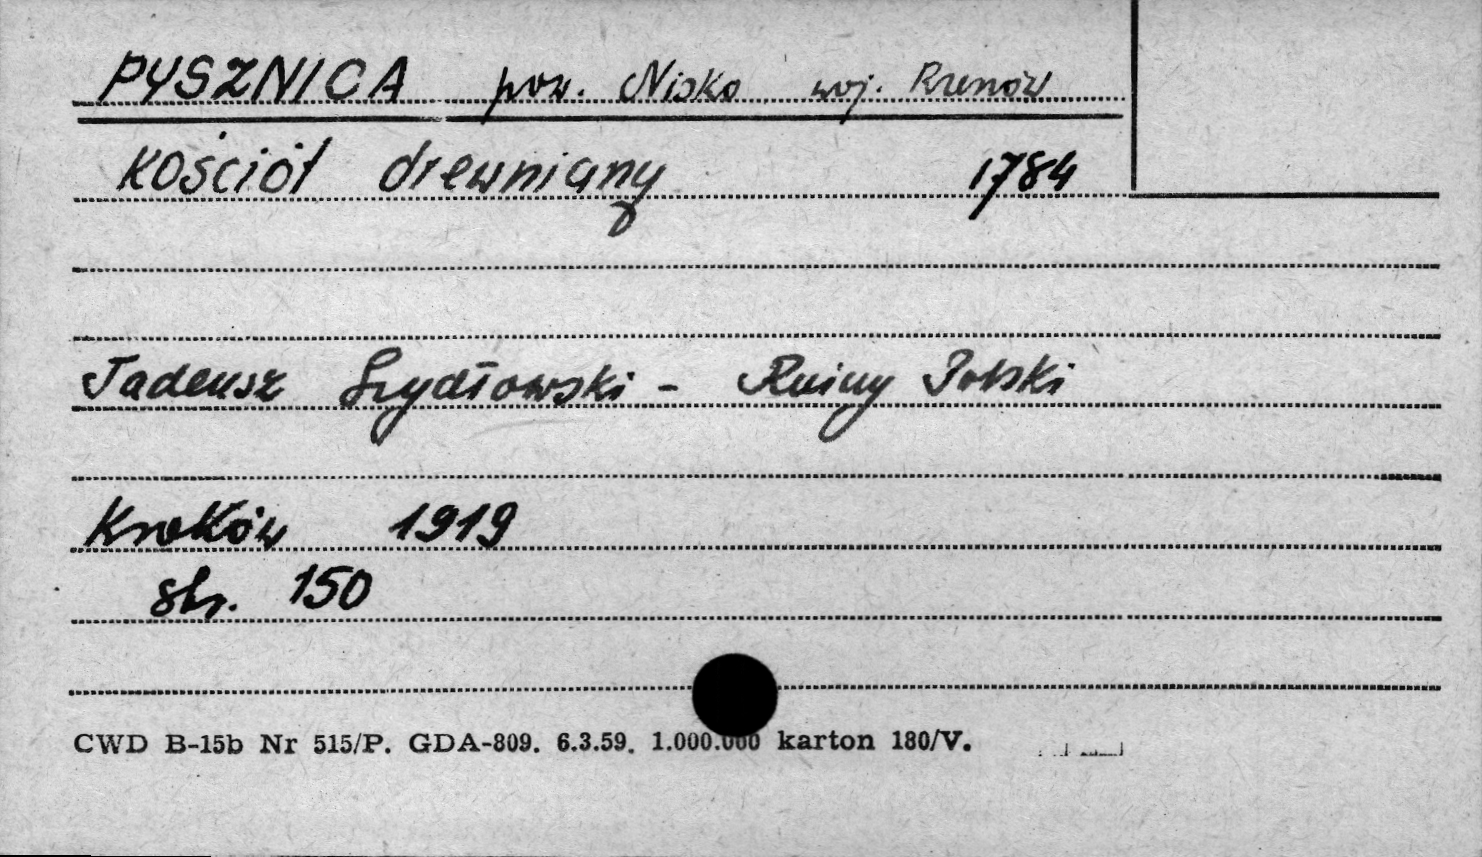 PYSZNICA pow. Nisko woj. Rzeszów
Kościół drewniany 1784
Tadeusz Szydłowski - Ruiny Polski
Kraków 1919
str. 150
CWD B-15b Nr 515/P. GDA-809. 6.3.59. 1.000.000 karton 180/V.